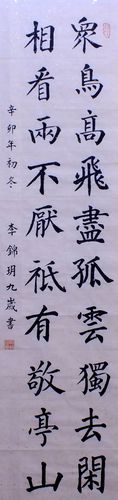 衆鳥高飛盡孤雲獨去閑
相看兩不厭祗有敬亭山
辛卯年初冬 李錦玥九歲書